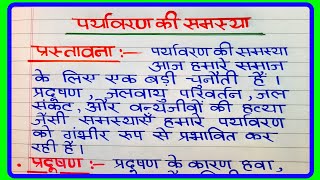 पर्यावरण की समस्या
प्रस्तावना :— पर्यावरण की समस्या
आज हमारे समाज
के लिए एक बड़ी चुनौती हैं ।
प्रदूषण , जलवायु परिवर्तन , जल
संकट , और वन्यजीवों की हत्या
जैसी समस्याएँ हमारे पर्यावरण
को गंभीर रूप से प्रभावित कर
रही हैं ।
• प्रदूषण :— प्रदूषण के कारण हवा ,